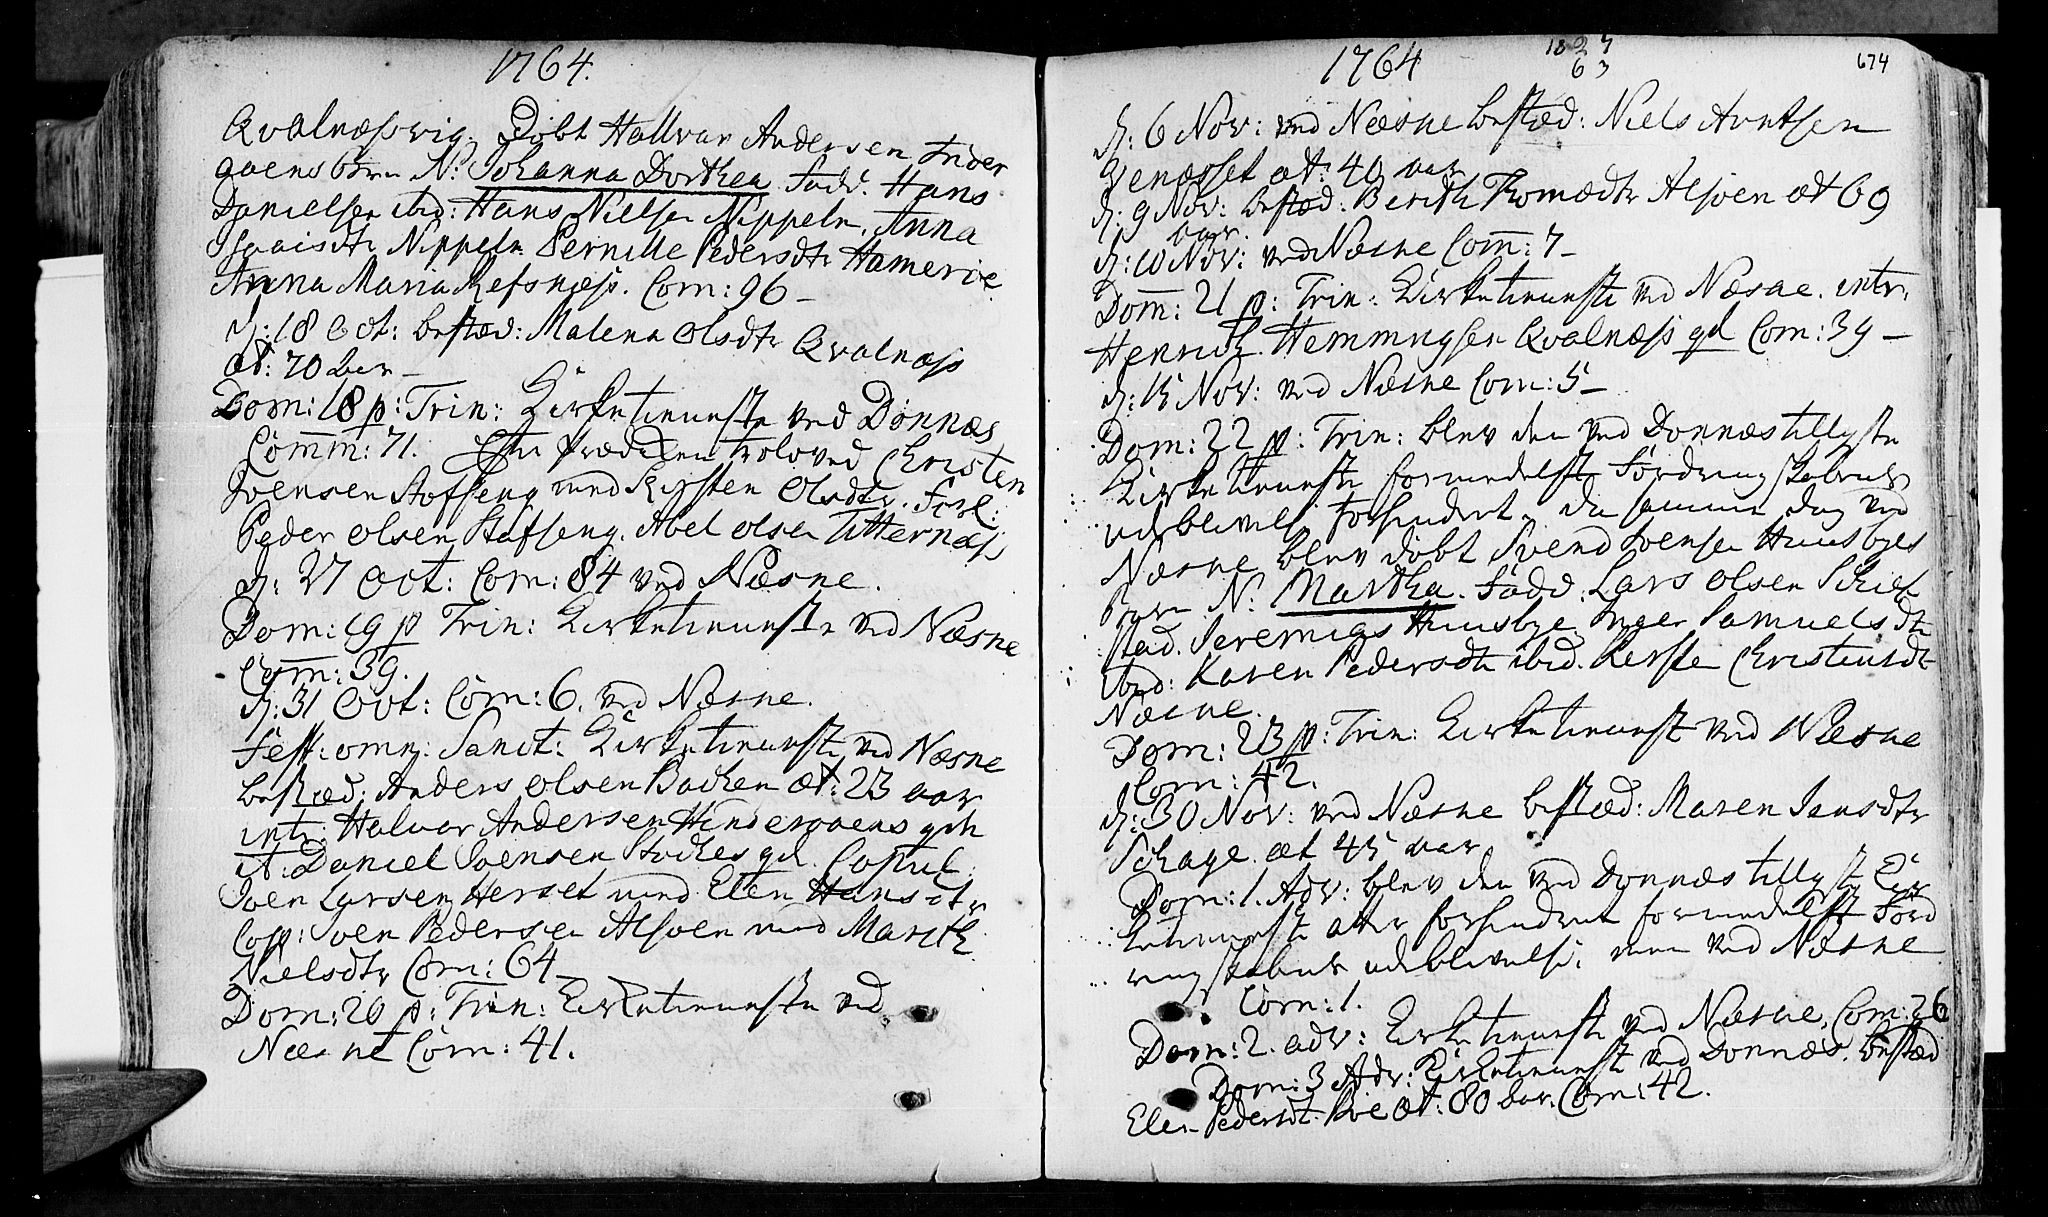 1764.
Qvalnæsvig. Döbt Hallvar Andersen Inder
aaens Barn N: Johanna Dorthea Fadd. Hans
Danielsen ibid: Hans Nielsen Nippeln, Anna
Isaisdtr Nippeln Pernille Pedersdtr Hamerøe
Anna Maria Refsnæs. Com: 96 –
d: 18 Oct: bestæd: Malena Olsdtr Qvalnæs
æt: 70 Aar –
Dom: 18 p: Trin: Kirketieneste ved Dönnæs
Comm: 71. Efter Prædiken troloved Christen
Svensen Stafseng med Kirsten Olsdtr. Forl:
Peder Olsen Stafseng. Abel Olsen Titternæs
d: 27 Oct: Com: 84 ved Næsne.
Dom: 19 p Trin: Kirketieneste ved Næsne
Com: 39.
d: 31 Oct: Com: 6. ved Næsne.
Fest: omn: Sanct: Kirketieneste ved Næsne
bestæd: Anders Olsen Backen æt: 23 aar
intr: Halvor Andersen Hinderaaens qvh
it: Daniel Svensen Stockes qd. Copul:
Sven Larsen Herset med Elen Hansdtr
Cop: Sven Pedersen Alsöen med Marith
Nielsdtr Com: 64 –
Dom: 20 p: Trin: Kirketieneste ved
Næsne Com: 41.
1764
18 27
63
674
d: 6 Nov: ved Næsne bestæd: Niels Arntsen
æt: 40 aar
d: 9 Nov: bestæd: Berith Thomædtr Alsöen æt 69
aar.
d: 10 Nov: ved Næsne Com: 7 –
Dom: 21 p: Trin: Kirketieneste ved Næsne. intr.
Henrich Hemmingsen Qvalnæs qd Com: 39 –
d: 15 Nov: ved Næsne Com: 5 –
Dom: 22 p: Trin: blev den ved Dönnæs tillyste
Kirketieneste formedelst Föringskabens
udblivelse forhindret. da samme dag ved
Næsne blev döbt Svend Svensen Huusbyes
Barn N: Martha. Fadd: Lars Olsen Schief
stad. Huusbye Inger Samuelsdtr
ibid: Karen Pedersdtr ibid. Kirsten Christensdtr
Næsne.
Dom: 23 p: Trin: Kirketienest ved Næsne
Com: 42.
d: 30 Nov: ved Næsne bestæd: Maren Jensdtr
Schage æt 45 aar
Dom: 1. Adv: blev den ved Dönnæs tillyste Kir
ketieneste atter forhindret formedelst Förd
ringskabens udblivelse, men ved Næsne
Com: 1.
Dom: 2. adv: Kirketieneste ved Næsne, Com: 26
Dom: 3 Adv: Kirketienest ved Dönnæs. bestæd
Elen Pedersdtr æt: 80 Aar. Com: 42.